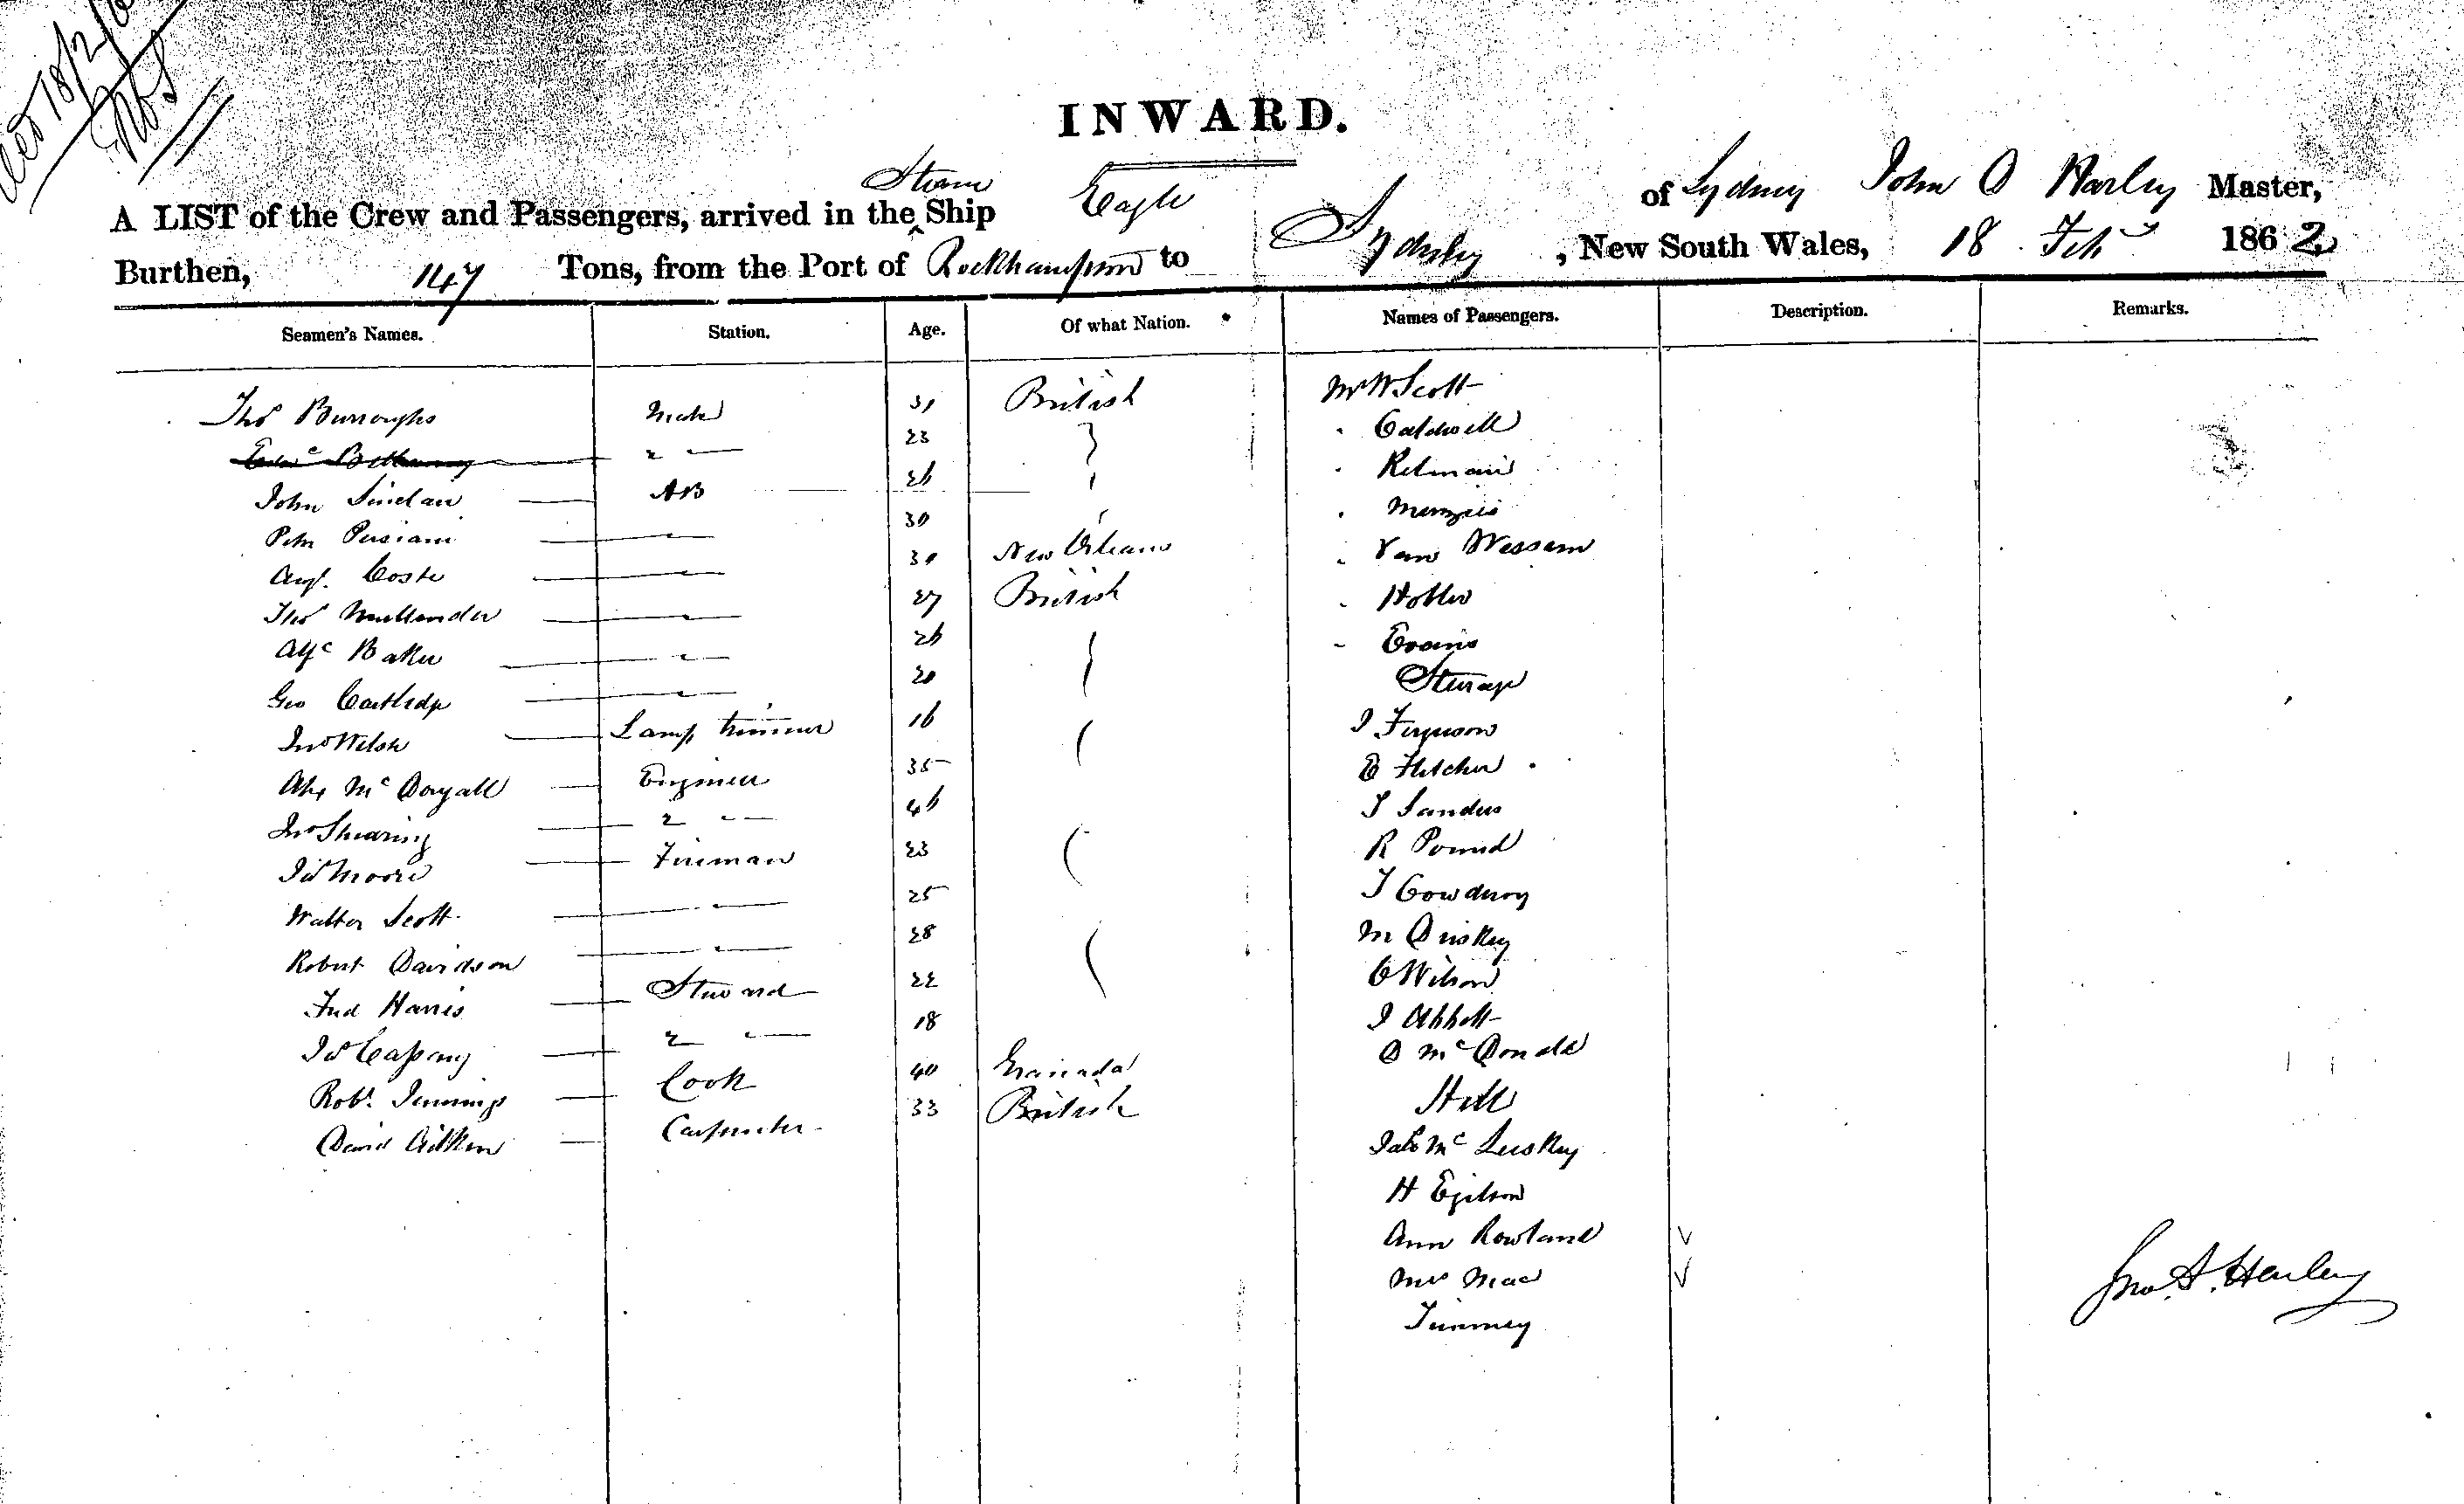 INWARD.
A LIST of the Crew and Passengers, arrived in the Steam Ship Eagle of Sydney John Master,
Burthen, 147 Tons, from the Port of Rockhampton to Sydney, New South Wales, 18 Feby 1862
Seamen's Names. Station. Age. Of what Nation. Names of Passengers. Description. Remarks.
Thos Burroughs Mate 31 British Mr W Scott
2 23 " Caldwell
John Sinclair AB 26 "
Peter 30 " Menzies
Augt. Coste 30 New Orleans " Van Wessem
Thos Mullender 27 British "
Alfc Baker 26 " Evans
Geo 20 Steerage
Jno Welsh Lamp trimmer 16 J Ferguson
Alex McDougall Engineer 35 E Fletcher
Jno Shearing 2 46 J Sanders
Jas Moore Fireman 23 R Pound
Walter Scott 25 J Cowdroy
Robert Davidson 28 M
Fred Harris Steward 22 C Wilson
Jas 2 18 J Abbott
Robt. Jennings Cook 40 Grenada D McDonald
David Aitken Carpenter 33 British Hill
McLuskey
H
Ann Rowland
Mrs Mac
Jno. A. Harley